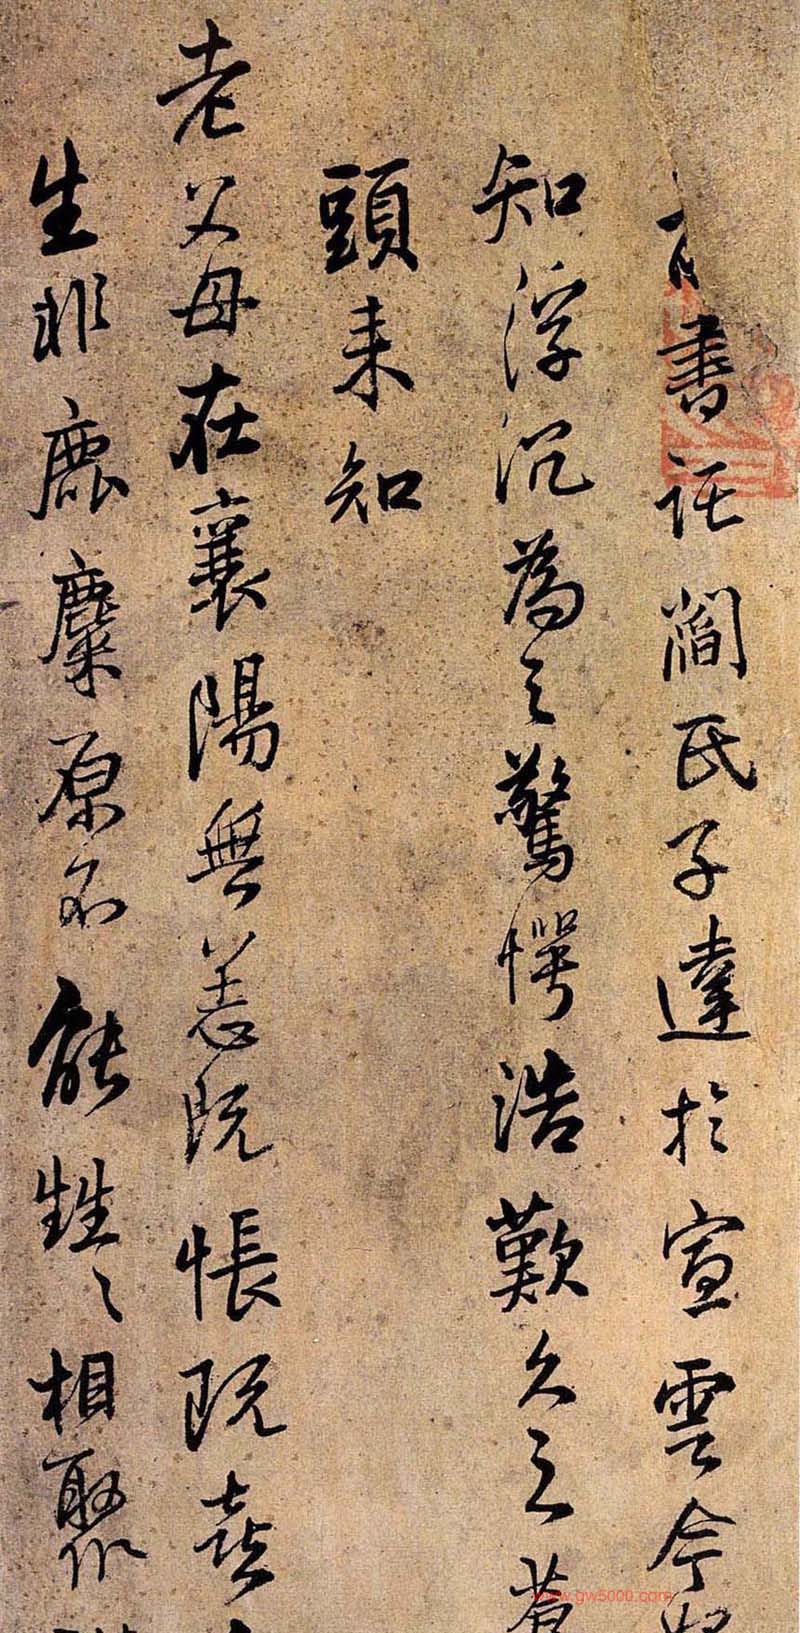 書託閻氏子達於宣雲今
知浮沉為之驚愕浩歎久之蒼
頭来知
老父母在襄陽無恙既悵既喜
生非鹿麋原不能甡〻相聚
www.gw5000.com